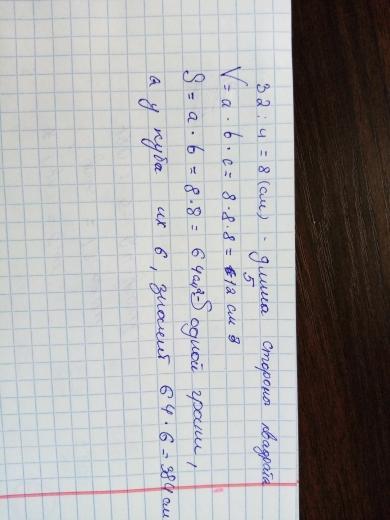 32 : 4 = 8 (см) - длина стороны квадрата
V = a · b · c = 8 · 8 · 8 = 512 см 3
S = a · b = 8 · 8 = 64 см² - S одной грани,
а у куба их 6, значит 64 · 6 = 384 см